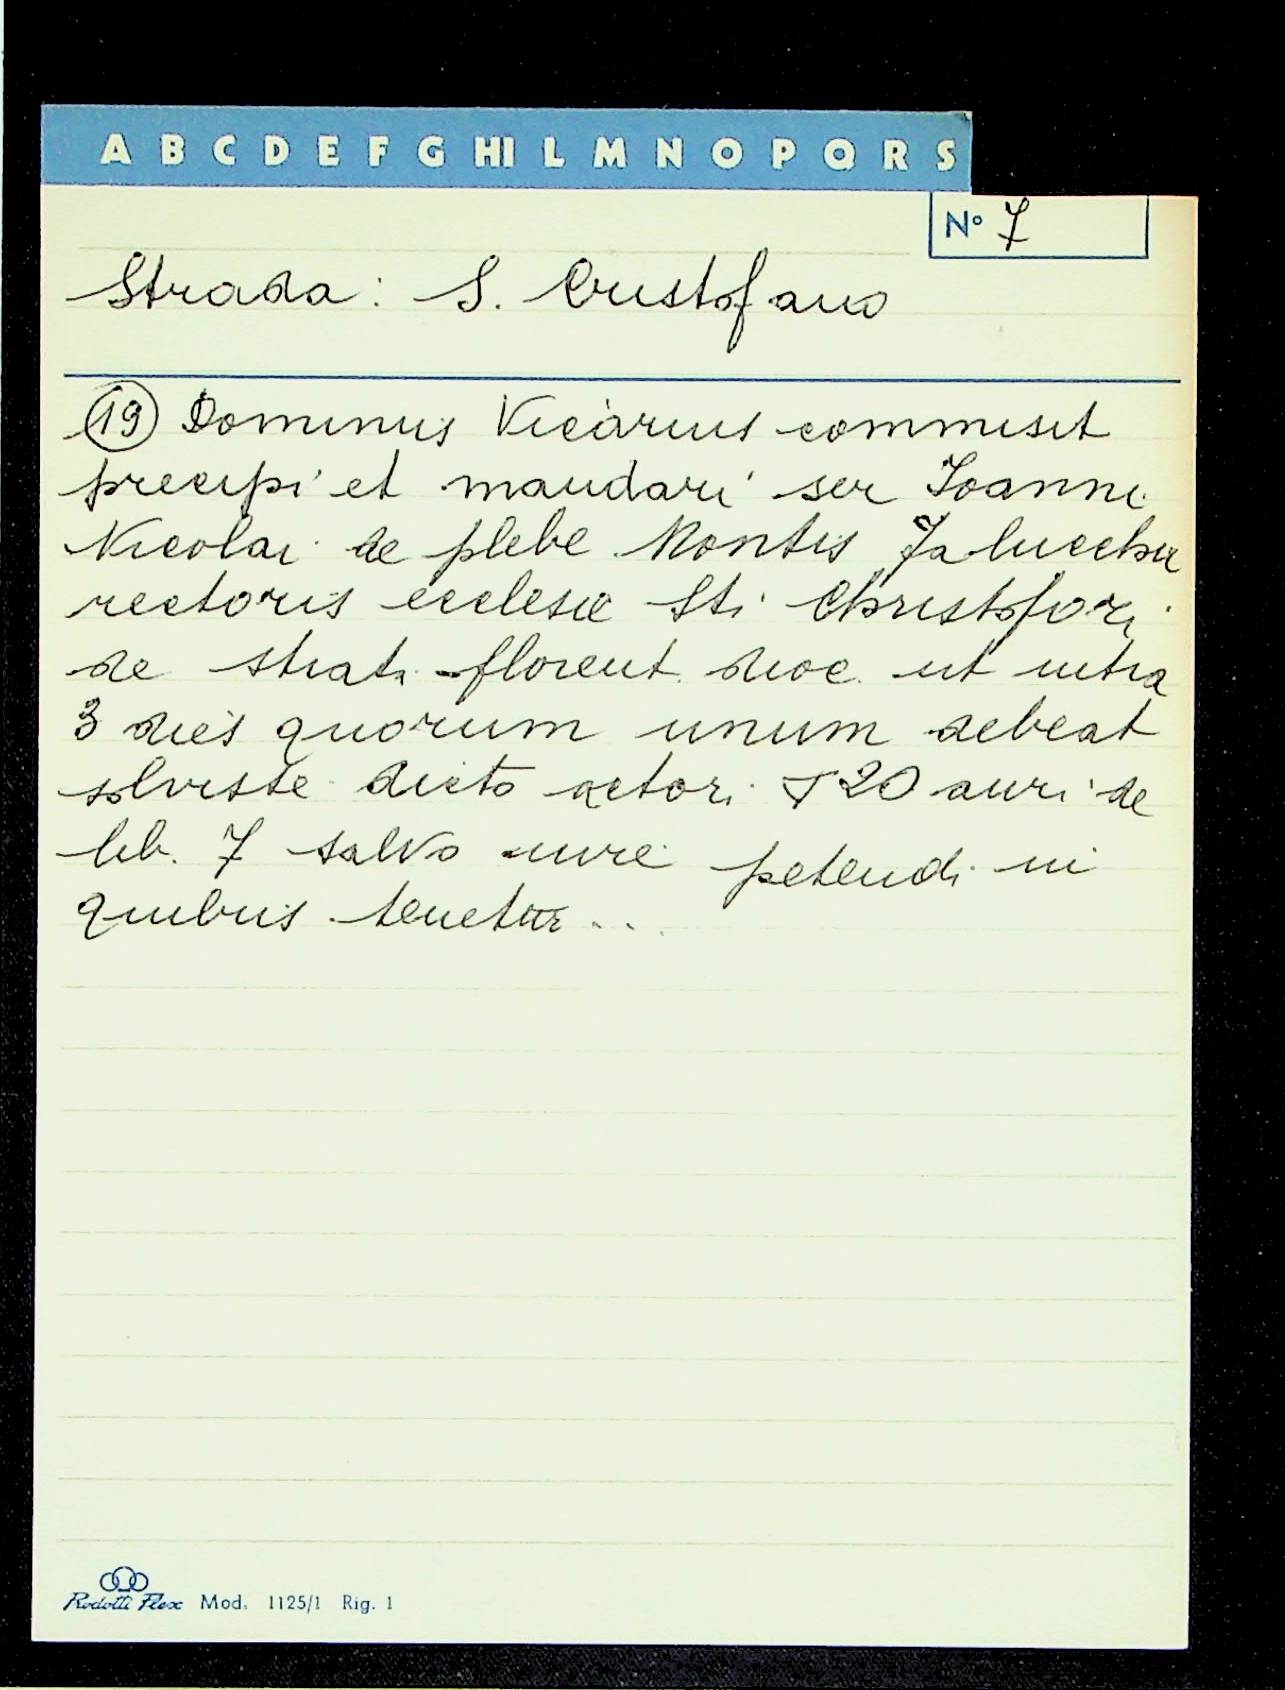 A B C D E F G HI L M N O P Q R S
N° 7
Strada: S. Cristofano
(19) Dominus Vicarius commisit
precipi et mandari ser Ioanni
Nicolai de plebe Montis Falucchii
rectoris ecclesie Sti Christofori
de strata florent. dioc. ut intra
3 dies quorum unum debeat
solvisse dicto actori 20 auri de
lib. 7 salvo iure petendi in
quibus tenetur...
Rodotti Flex Mod. 1125/1 Rig. 1